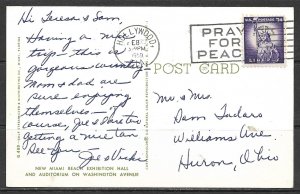 Hi Teresa & Sam,
Having a nice
trip. this is a
gorgeous country
Mom & dad are
sure enjoying
themselves. of
course, Joe & I are too
Getting a nice tan
See you
Joe & Vickie
HOLLYWOOD
FEB
PM
PRAY
FOR
PEACE
U.S. POSTAGE 3¢
LIBERTY
POST CARD
Mr & Mrs.
Sam Tudaro
Williams Ave.
Huron, Ohio
NEW MIAMI BEACH EXHIBITION HALL
AND AUDITORIUM ON WASHINGTON AVENUE